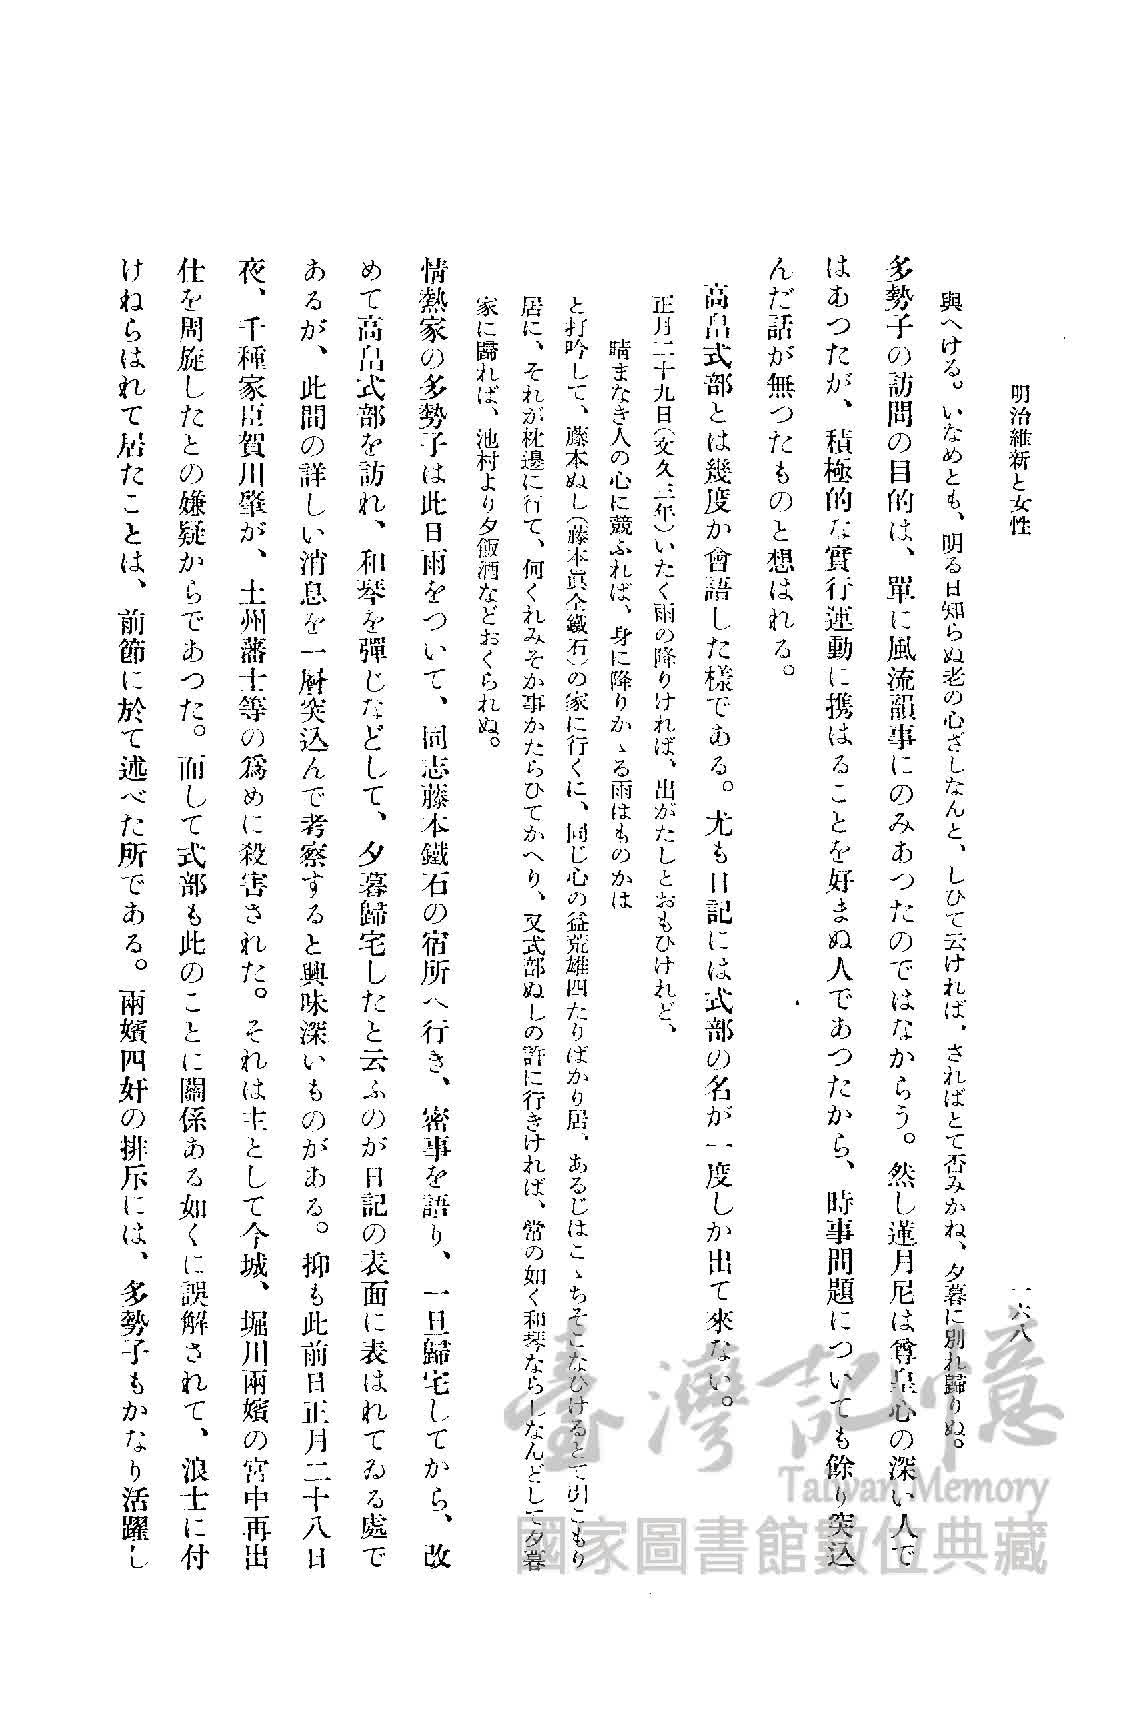 明治維新と女性
一六八
與へける。いなめとも、明る日知らぬ老の心ざしなんと、しひて云ければ、さればとて否みかね、夕暮に別れ歸りぬ。
多勢子の訪問の目的は、單に風流韻事にのみあつたのではなからう。然し蓮月尼は尊皇心の深い人で
はあつたが、積極的な實行運動に携はることを好まぬ人であつたから、時事問題についても餘り突込
んだ話が無つたものと想はれる。
高畠式部とは幾度か會語した樣である。尤も日記には式部の名が一度しか出て來ない。
正月二十九日(文久三年)いたく雨の降りければ、出がたしとおもひけれど、
晴まなき人の心に競ふれば、身に降りかゝる雨はものかは
と打吟して、藤本ぬし(藤本眞金鐵石)の家に行くに、同じ心の益荒雄四たりばかり居、あるじはこゝちそこなひけるとて引こもり
居に、それが枕邊に行て、何くれみそか事かたらひてかへり、又式部ぬしの許に行きければ、常の如く和琴ならしなんどして夕暮
家に歸れば、池村より夕飯酒などおくられぬ。
情熱家の多勢子は此日雨をついて、同志藤本鐵石の宿所へ行き、密事を語り、一旦歸宅してから、改
めて高畠式部を訪れ、和琴を彈じなどして、夕暮歸宅したと云ふのが日記の表面に表はれてゐる處で
あるが、此間の詳しい消息を一層突込んで考察すると興味深いものがある。抑も此前日正月二十八日
夜、千種家臣賀川肇が、土州藩士等の爲めに殺害された。それは主として今城、堀川兩嬪の宮中再出
仕を周旋したとの嫌疑からであつた。而して式部も此のことに關係ある如くに誤解されて、浪士に付
けねらはれて居たことは、前節に於て述べた所である。兩嬪四奸の排斥には、多勢子もかなり活躍し
臺灣記憶
Taiwan Memory
國家圖書館數位典藏